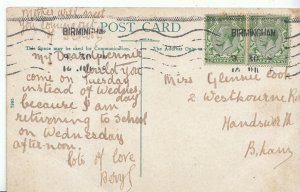 POST CARD
BIRMINGHAM
BIRMINGHAM
This Space may be used for Communication.
The Address Only
My Dear
could you
come on Tuesday
instead of Wednes
day
because I am
returning to school
on Wednesday
afternoon.
lots of love
Beryl
Miss Glennie Cook
2 Westbourne R
Handsworth
B.ham